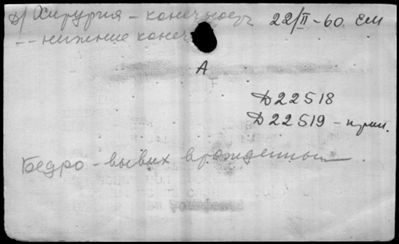 Д/ Хирургия - конечность 22/II-60. см
-- нижние конеч
А
Д22518
Д22519 - прил.
Бедро - вывих врожденный